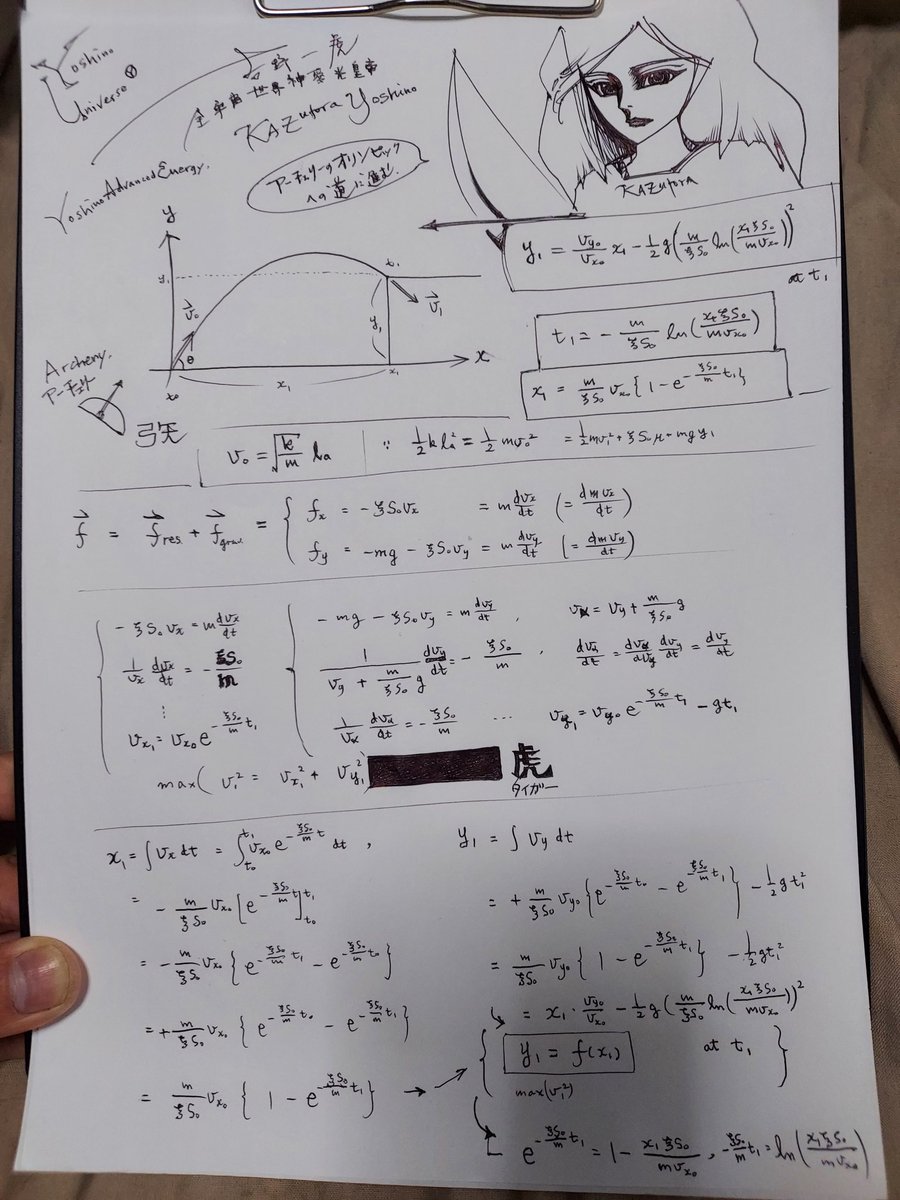 Yoshino
Universe Ⓨ
吉野一虎
全宇宙世界神聖光皇帝
KAZutora Yoshino
Yoshino Advanced Energy.
アーチェリーのオリンピック
への道に進む.
KAZUtora
y₁ = v_{y0}/v_{x0} x₁ - 1/2 g(m/ξS₀ ln(x₁ξS₀/mv_{x0}))²
at t₁
y
y₁
t₁
v⃗₀
v⃗₁
θ
y₁
x
t₀
x₁
x₁
t₁ = - m/ξS₀ ln(x₁ξS₀/mv_{x0})
x₁ = m/ξS₀ v_{x0}{1 - e^{-ξS₀/m t₁}}
Archery.
アーチェリー
弓矢
v₀ = √(k/m) la ∵ 1/2 k la² = 1/2 mv₀² = 1/2 mv₁² + ξS₀μ + mgy₁
f⃗ = f⃗res + f⃗grav. = {
fx = -ξS₀vx = m dvx/dt (= dmvx/dt)
fy = -mg - ξS₀vy = m dvy/dt (= dmvy/dt)
-ξS₀vx = m dvx/dt
1/vx dvx/dt = - ξS₀/m
⋮
v_{x1} = v_{x0} e^{-ξS₀/m t₁}
-mg - ξS₀vy = m dvy/dt, vα = vy + m/ξS₀ g
1/(vy + m/ξS₀ g) dvy/dt = - ξS₀/m, dvα/dt = dvα/dvy dvy/dt = dvy/dt
1/vα dvα/dt = - ξS₀/m ... v_{y1} = v_{y0} e^{-ξS₀/m t₁} - gt₁
max( v₁² = v_{x1}² + v_{y1}²)
虎
タイガー
x₁ = ∫vx dt = ∫_{t₀}^{t₁} v_{x0} e^{-ξS₀/m t} dt,
= - m/ξS₀ v_{x0} [e^{-ξS₀/m t}]_{t₀}^{t₁}
= - m/ξS₀ v_{x0} {e^{-ξS₀/m t₁} - e^{-ξS₀/m t₀}}
= + m/ξS₀ v_{x0} {e^{-ξS₀/m t₀} - e^{-ξS₀/m t₁}}
= m/ξS₀ v_{x0} {1 - e^{-ξS₀/m t₁}} → →
y₁ = ∫vy dt
= + m/ξS₀ v_{y0} {e^{-ξS₀/m t₀} - e^{-ξS₀/m t₁}} - 1/2 gt₁²
= m/ξS₀ v_{y0} {1 - e^{-ξS₀/m t₁}} - 1/2 gt₁²
= x₁ · v_{y0}/v_{x0} - 1/2 g(m/ξS₀ ln(x₁ξS₀/mv_{x0}))²
y₁ = f(x₁) at t₁
max(v₁²)
e^{-ξS₀/m t₁} = 1 - x₁ξS₀/mv_{x0}, -ξS₀/m t₁ = ln(x₁ξS₀/mv_{x0})